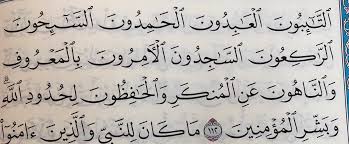 ٱلتَّـٰٓئِبُونَ ٱلْعَـٰبِدُونَ ٱلْحَـٰمِدُونَ ٱلسَّـٰٓئِحُونَ
ٱلرَّٰكِعُونَ ٱلسَّـٰجِدُونَ ٱلْـَٔامِرُونَ بِٱلْمَعْرُوفِ
وَٱلنَّاهُونَ عَنِ ٱلْمُنكَرِ وَٱلْحَـٰفِظُونَ لِحُدُودِ ٱللَّهِ ۗ
وَبَشِّرِ ٱلْمُؤْمِنِينَ ١١٢ مَا كَانَ لِلنَّبِىِّ وَٱلَّذِينَ ءَامَنُوٓا۟